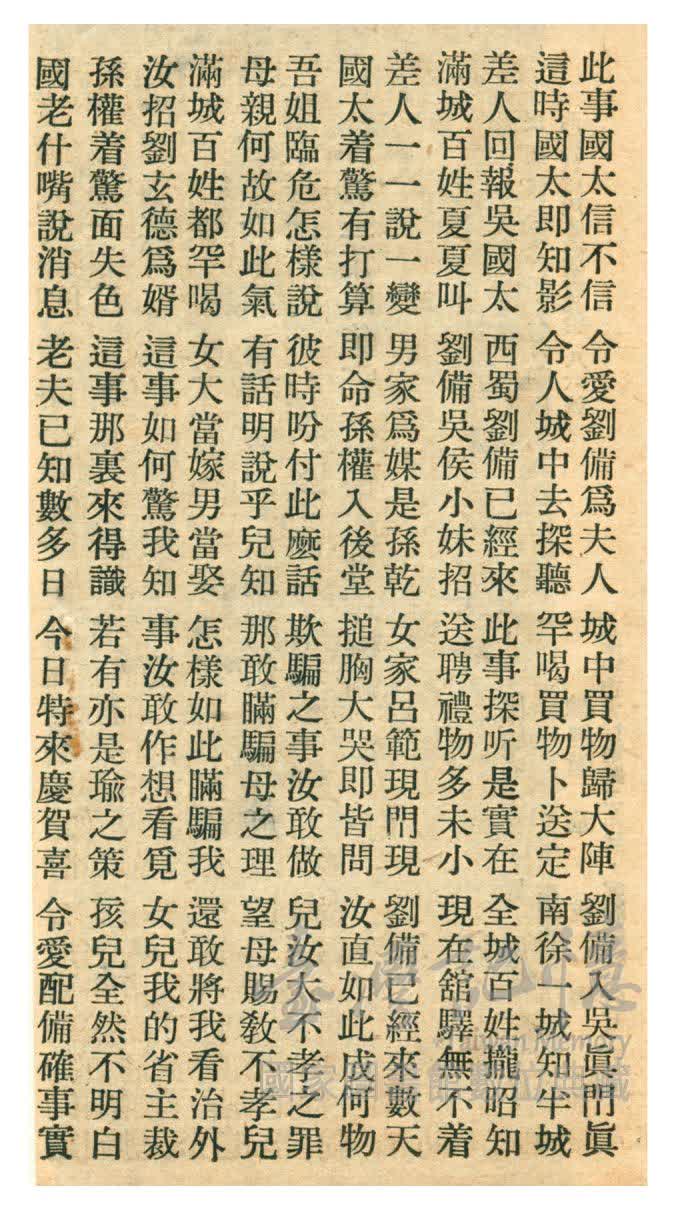 此事國太信不信 令愛劉備爲夫人 城中買物歸大陣 劉備入吳眞門眞
這時國太即知影 令人城中去探聽 罕喝買物卜送定 南徐一城知半城
差人回報吳國太 西蜀劉備已經來 此事探听是實在 全城百姓攏昭知
滿城百姓夏夏叫 劉備吳侯小妹招 送聘禮物多未小 現在舘驛無不着
差人一一說一變 男家爲媒是孫乾 女家呂範現門現 劉備已經來數天
國太着驚有打算 即命孫權入後堂 搥胸大哭即皆問 汝直如此成何物
吾姐臨危怎樣說 彼時吩付此麽話 欺騙之事汝敢做 兒汝大不孝之罪
母親何故如此氣 有話明說乎兒知 那敢瞞騙母之理 望母賜教不孝兒
滿城百姓都罕喝 女大當嫁男當娶 怎樣如此瞞騙我 還敢將我看治外
汝招劉玄德爲婿 這事如何驚我知 事汝敢作想看覓 女兒我的省主裁
孫權着驚面失色 這事那裏來得識 若有亦是瑜之策 孩兒全然不明白
國老什嘴說消息 老夫已知數多日 今日特來慶賀喜 令愛配備確事實